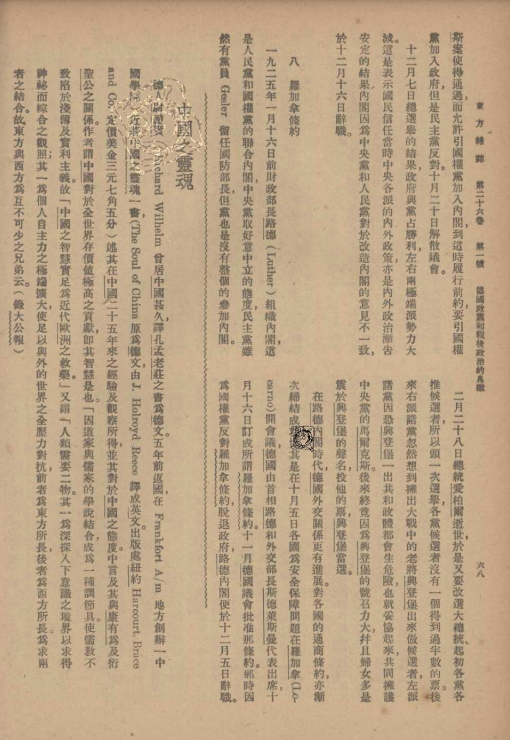 東方雜誌 第二十六卷 第一號 德國政黨和戰後政治的鳥瞰 六八
斯案使得通過而允許引國權黨加入內閣到這時履行前約要引國權
黨加入政府但是民主黨反對十月二十日解散議會。
十二月七日總選舉的結果政府與黨占勝利左右兩極端派勢力大
減這是表示國民信任當時中央各派的內外政策亦是內外政治漸告
安定的結果內閣因為中央黨和人民黨對於改造內閣的意見不一致,
於十二月十六日辭職。
八 羅加拿條約
一九二五年一月十六日前財政部長路德(Luther)組織內閣這
是人民黨和國權黨的聯合內閣中央黨取好意中立的態度民主黨雖
然有黨員 Gesler 留任國防部長但黨也是沒有整個的參加內閣。
二月二十八日總統愛柏爾逝世於是又要改選大總統起初各黨各
推候選者所以頭一次選舉各黨候選者沒有一個得到過半數的票後
來右派諸黨忽然想到擁出大戰中的老將興登堡出來做候選者左派
諸黨因恐興登堡一出共和政體都會生危險也就妥協起來共同擁護
中央黨的馬爾克斯後來終竟因為興登堡的號召力大幷且婦女多是
震於興登堡的聲名投他的票興登堡當選。
在路德內閣時代德國外交關係更有進展對各國的通商條約亦漸
次締結成其是在十月五日各國為安全保障問題在羅加拿(Lo-
carno)開會議德國由首相路德和外交部長斯德萊斯曼代表出席十
月十六日訂成所謂羅加拿條約十一月德國議會批准那條約那時因
為國權黨反對羅加拿條約脫退政府路德內閣便於十二月五日辭職。
中國之靈魂
德人尉禮賢 Richard Wilhelm 曾居中國甚久譯孔孟老莊之書為德文五年前返國在 Frankfort A/m 地方創辦一中
國學院近著中國之靈魂一書(The Soul of China 原為德文由 J. Holroyd Reece 譯成英文出版處紐約 Harcourt, Brace
and Co. 定價美金三元七角五分)述其在中國二十五年來之經驗及觀察所得並其對於中國之態度中言及其與康有為及衍
聖公之關係作者謂中國對於全世界存價值極高之貢獻即其智慧是也「因道家與儒家的學說結合成為一種調節具使儒教不
致陷於淺薄及實利主義故「中國之智慧實足為近代歐洲之救藥」又謂「人類需要二物其一為深探入下意識之境界以求得
神祕而綜合之觀照其一為個人自主力之極端擴大使足以與外的世界之全壓力對抗前者為東方所長後者為西方所長為求兩
者之結合故東方與西方為互不可少之兄弟云(錄大公報)